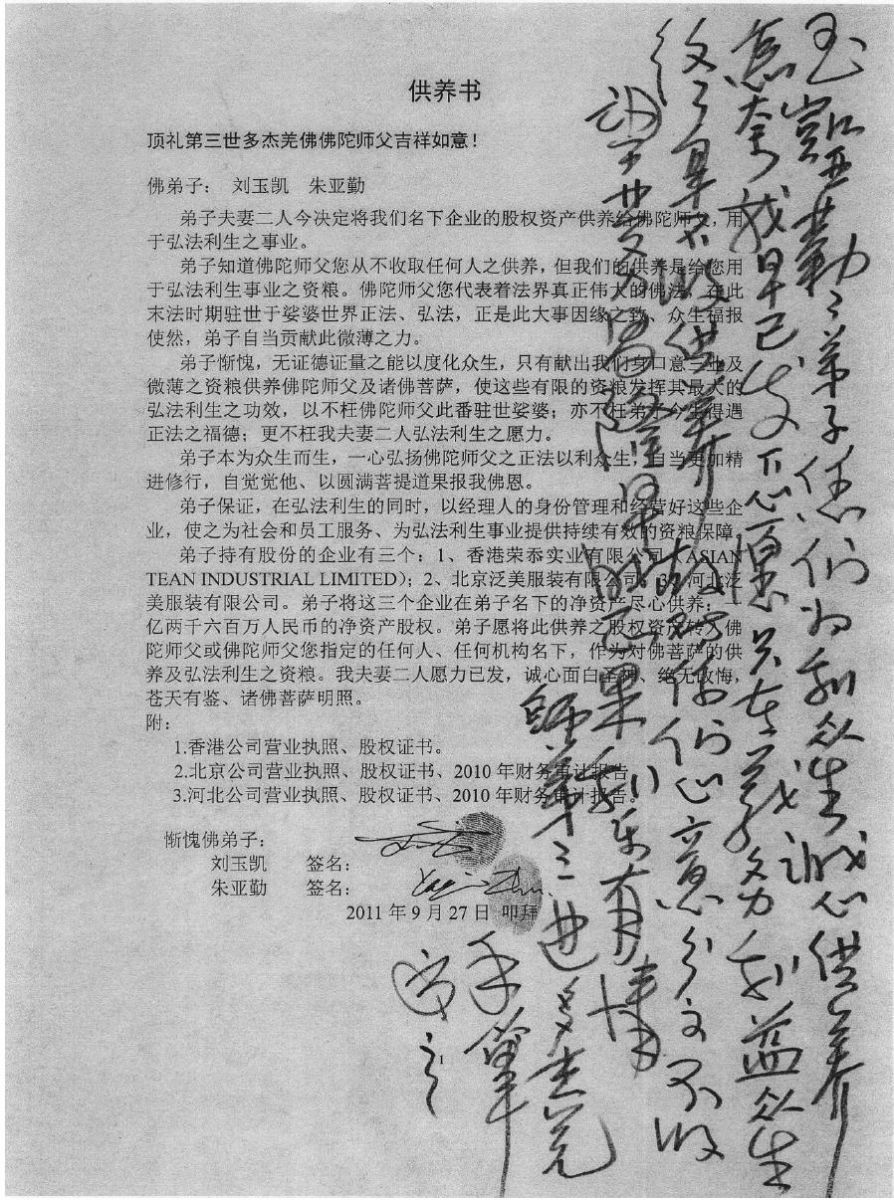 供养书
顶礼第三世多杰羌佛佛陀师父吉祥如意！
佛弟子： 刘玉凯 朱亚勤
弟子夫妻二人今决定将我们名下企业的股权资产供养给佛陀师父，用
于弘法利生之事业。
弟子知道佛陀师父您从不收取任何人之供养，但我们的供养是给您用
于弘法利生事业之资粮。佛陀师父您代表着法界真正伟大的佛法，在此
末法时期驻世于娑婆世界正法、弘法，正是此大事因缘之致、众生福报
使然，弟子自当贡献此微薄之力。
弟子惭愧，无证德证量之能以度化众生，只有献出我们身口意三业及
微薄之资粮供养佛陀师父及诸佛菩萨，使这些有限的资粮发挥其最大的
弘法利生之功效，以不枉佛陀师父此番驻世娑婆；亦不枉弟子今生得遇
正法之福德；更不枉我夫妻二人弘法利生之愿力。
弟子本为众生而生，一心弘扬佛陀师父之正法以利众生，自当更加精
进修行，自觉觉他、以圆满菩提道果报我佛恩。
弟子保证，在弘法利生的同时，以经理人的身份管理和经营好这些企
业，使之为社会和员工服务、为弘法利生事业提供持续有效的资粮保障
弟子持有股份的企业有三个：1、香港荣忝实业有限公司（KASIAN
TEAN INDUSTRIAL LIMITED）；2、北京泛美服装有限公司；3、河北泛
美服装有限公司。弟子将这三个企业在弟子名下的净资产尽心供养：一
亿两千六百万人民币的净资产股权。弟子愿将此供养之股权资产转入佛
陀师父或佛陀师父您指定的任何人、任何机构名下，作为对佛菩萨的供
养及弘法利生之资粮。我夫妻二人愿力已发，诚心面白圣神、绝无改悔，
苍天有鉴、诸佛菩萨明照。
附：
1.香港公司营业执照、股权证书。
2.北京公司营业执照、股权证书、2010 年财务审计报告。
3.河北公司营业执照、股权证书、2010 年财务审计报告。
惭愧佛弟子：
刘玉凯 签名：
朱亚勤 签名： Yaqin Zhu
2011 年 9 月 27 日 叩拜
玉凯亚勤二弟子你们为利众生诚心供养
怎奈我早已发下心愿只在义务利益众生
终了是不收供养 故对你们心意分文不收
早成正果利乐有情
第三世多杰羌
手笔